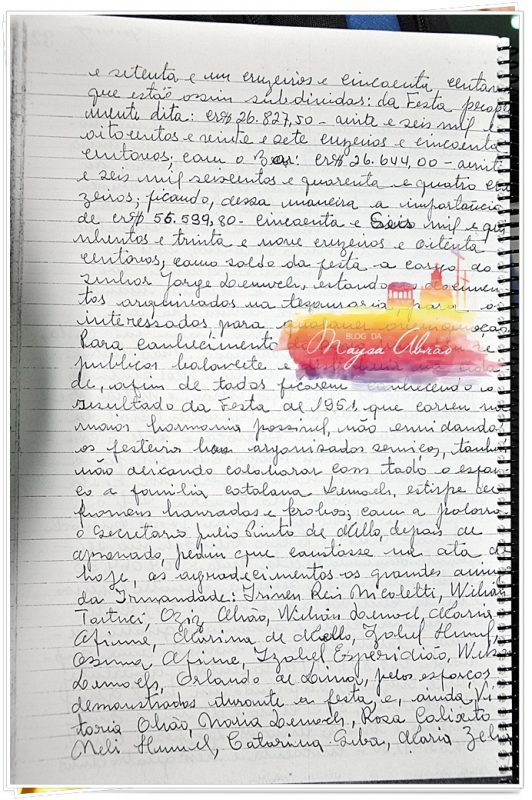 e setenta e um cruzeiros e cincoenta centavos
que estão assim subdivididas: da Festa
mente dita: cr$ 26.827,50 - vinte e seis mil e
oitocentos e vinte e sete cruzeiros e cincoenta
centavos; com o cr$ 26.644,00 - vinte
e seis mil seiscentos e quarenta e quatro cru
zeiros; ficando, dessa maneira a importancia
de cr$ 56.539,80 - cincoenta e Seis mil e qui
nhentos e trinta e nove cruzeiros e oitenta
centavos, como saldo da festa a cargo do
senhor Jorge Democh, estando os documen
tos arquivados na tezouraria, para os
interessados para
Para conhecimento
BLOG DA
Maysa Abrão
publicar balancete e
de, afim de todos ficarem conhecendo o
resultado da Festa de 1951, que correu na
maior harmonia possivel, não
os festeiros organisados serviço, tambem
não deixando colaborar com todo o esfor
ço a familia catalana Democh, estirpe de
homens honrados e probos; com a palavra
o secretario Julio Pinto de Mello, depois de
aprovado, pediu que constasse na ata de
hoje, os agradecimentos os grandes amigos
da Irmandade: Irineu Reis Nicoletti, Wilian
Tartuci, Aziz Abrão, Wilian Democh, Maria
Afiune, Marina de Mello, Izabel Hummel,
Afiune, Izabel Esperidião,
Democh, Orlando de Lima, pelos esforços
demonstrados durante a festa, e, ainda, Vi
toria Abrão, Maria Democh, Rosa Calixto
Neli Hummel, Catarina Maria